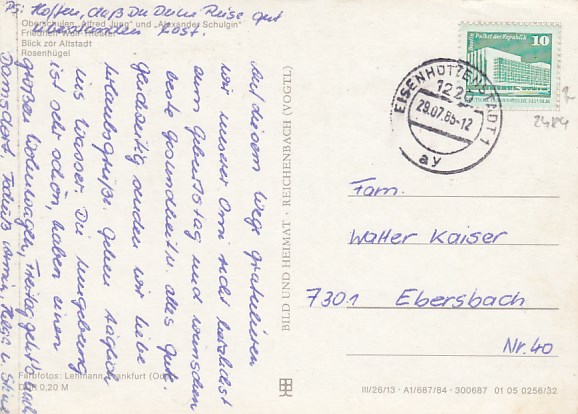 Ps: Hoffen, daß Du Deine Reise gut
überstanden hast.
Oberschulen „Alfred Jung“ und „Alexander Schulgin“
Friedrich-Wolf-Theater
Blick zur Altstadt
Rosenhügel
Auf diesem Wege gratulieren
wir unserer Omi recht herzlichst
zum Geburtstag und wünschen
beste Gesundheit u. alles Gute.
Gleichzeitig senden wir liebe
Urlaubsgrüße. Gehen täglich
ins Wasser. Die Umgebung
ist sehr schön, haben einen
großen Wohnwagen, Freitag geht's
Damsdorf.
Farbfotos: Lehmann, Frankfurt (Oder)
0,20 M
BILD UND HEIMAT · REICHENBACH (VOGTL)
Palast der Republik
10
DDR
EISENHÜTTENSTADT 1
1220
29.07.85-12
ay
2484
Fam.
Walter Kaiser
7301 Ebersbach
Nr. 40
III/26/13 · A1/687/84 · 300687 01 05 0256/32